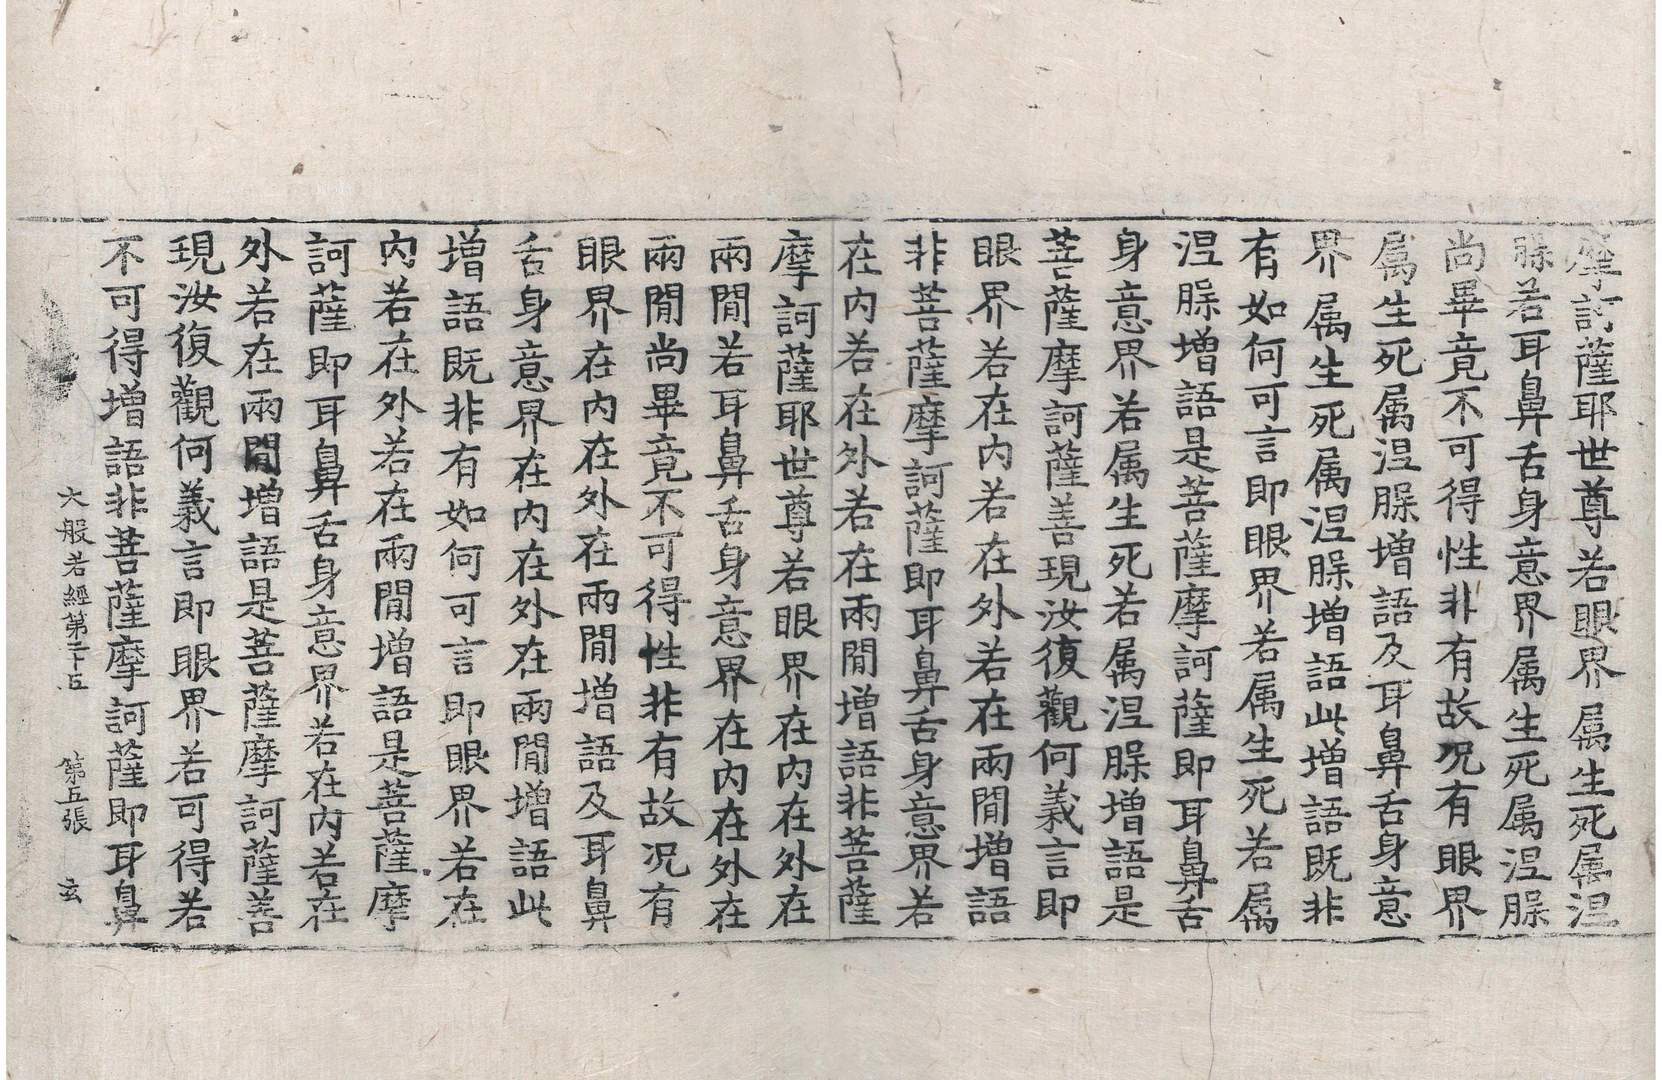 摩訶薩耶世尊若眼界属生死属涅
腺若耳鼻舌身意界属生死属涅腺
尚畢竟不可得性非有故况有眼界
属生死属涅腺增語及耳鼻舌身意
界属生死属涅腺增語此增語既非
有如何可言即眼界若属生死若属
涅腺增語是菩薩摩訶薩即耳鼻舌
身意界若属生死若属涅腺增語是
菩薩摩訶薩善現汝復觀何義言即
眼界若在内若在外若在兩閒增語
非菩薩摩訶薩即耳鼻舌身意界若
在内若在外若在兩閒增語非菩薩
摩訶薩耶世尊若眼界在内在外在
兩閒若耳鼻舌身意界在内在外在
兩閒尚畢竟不可得性非有故况有
眼界在内在外在兩閒增語及耳鼻
舌身意界在内在外在兩閒增語此
增語既非有如何可言即眼界若在
内若在外若在兩閒增語是菩薩摩
訶薩即耳鼻舌身意界若在内若在
外若在兩閒增語是菩薩摩訶薩善
現汝復觀何義言即眼界若可得若
不可得增語非菩薩摩訶薩即耳鼻
大般若經第二十五 第五張 玄